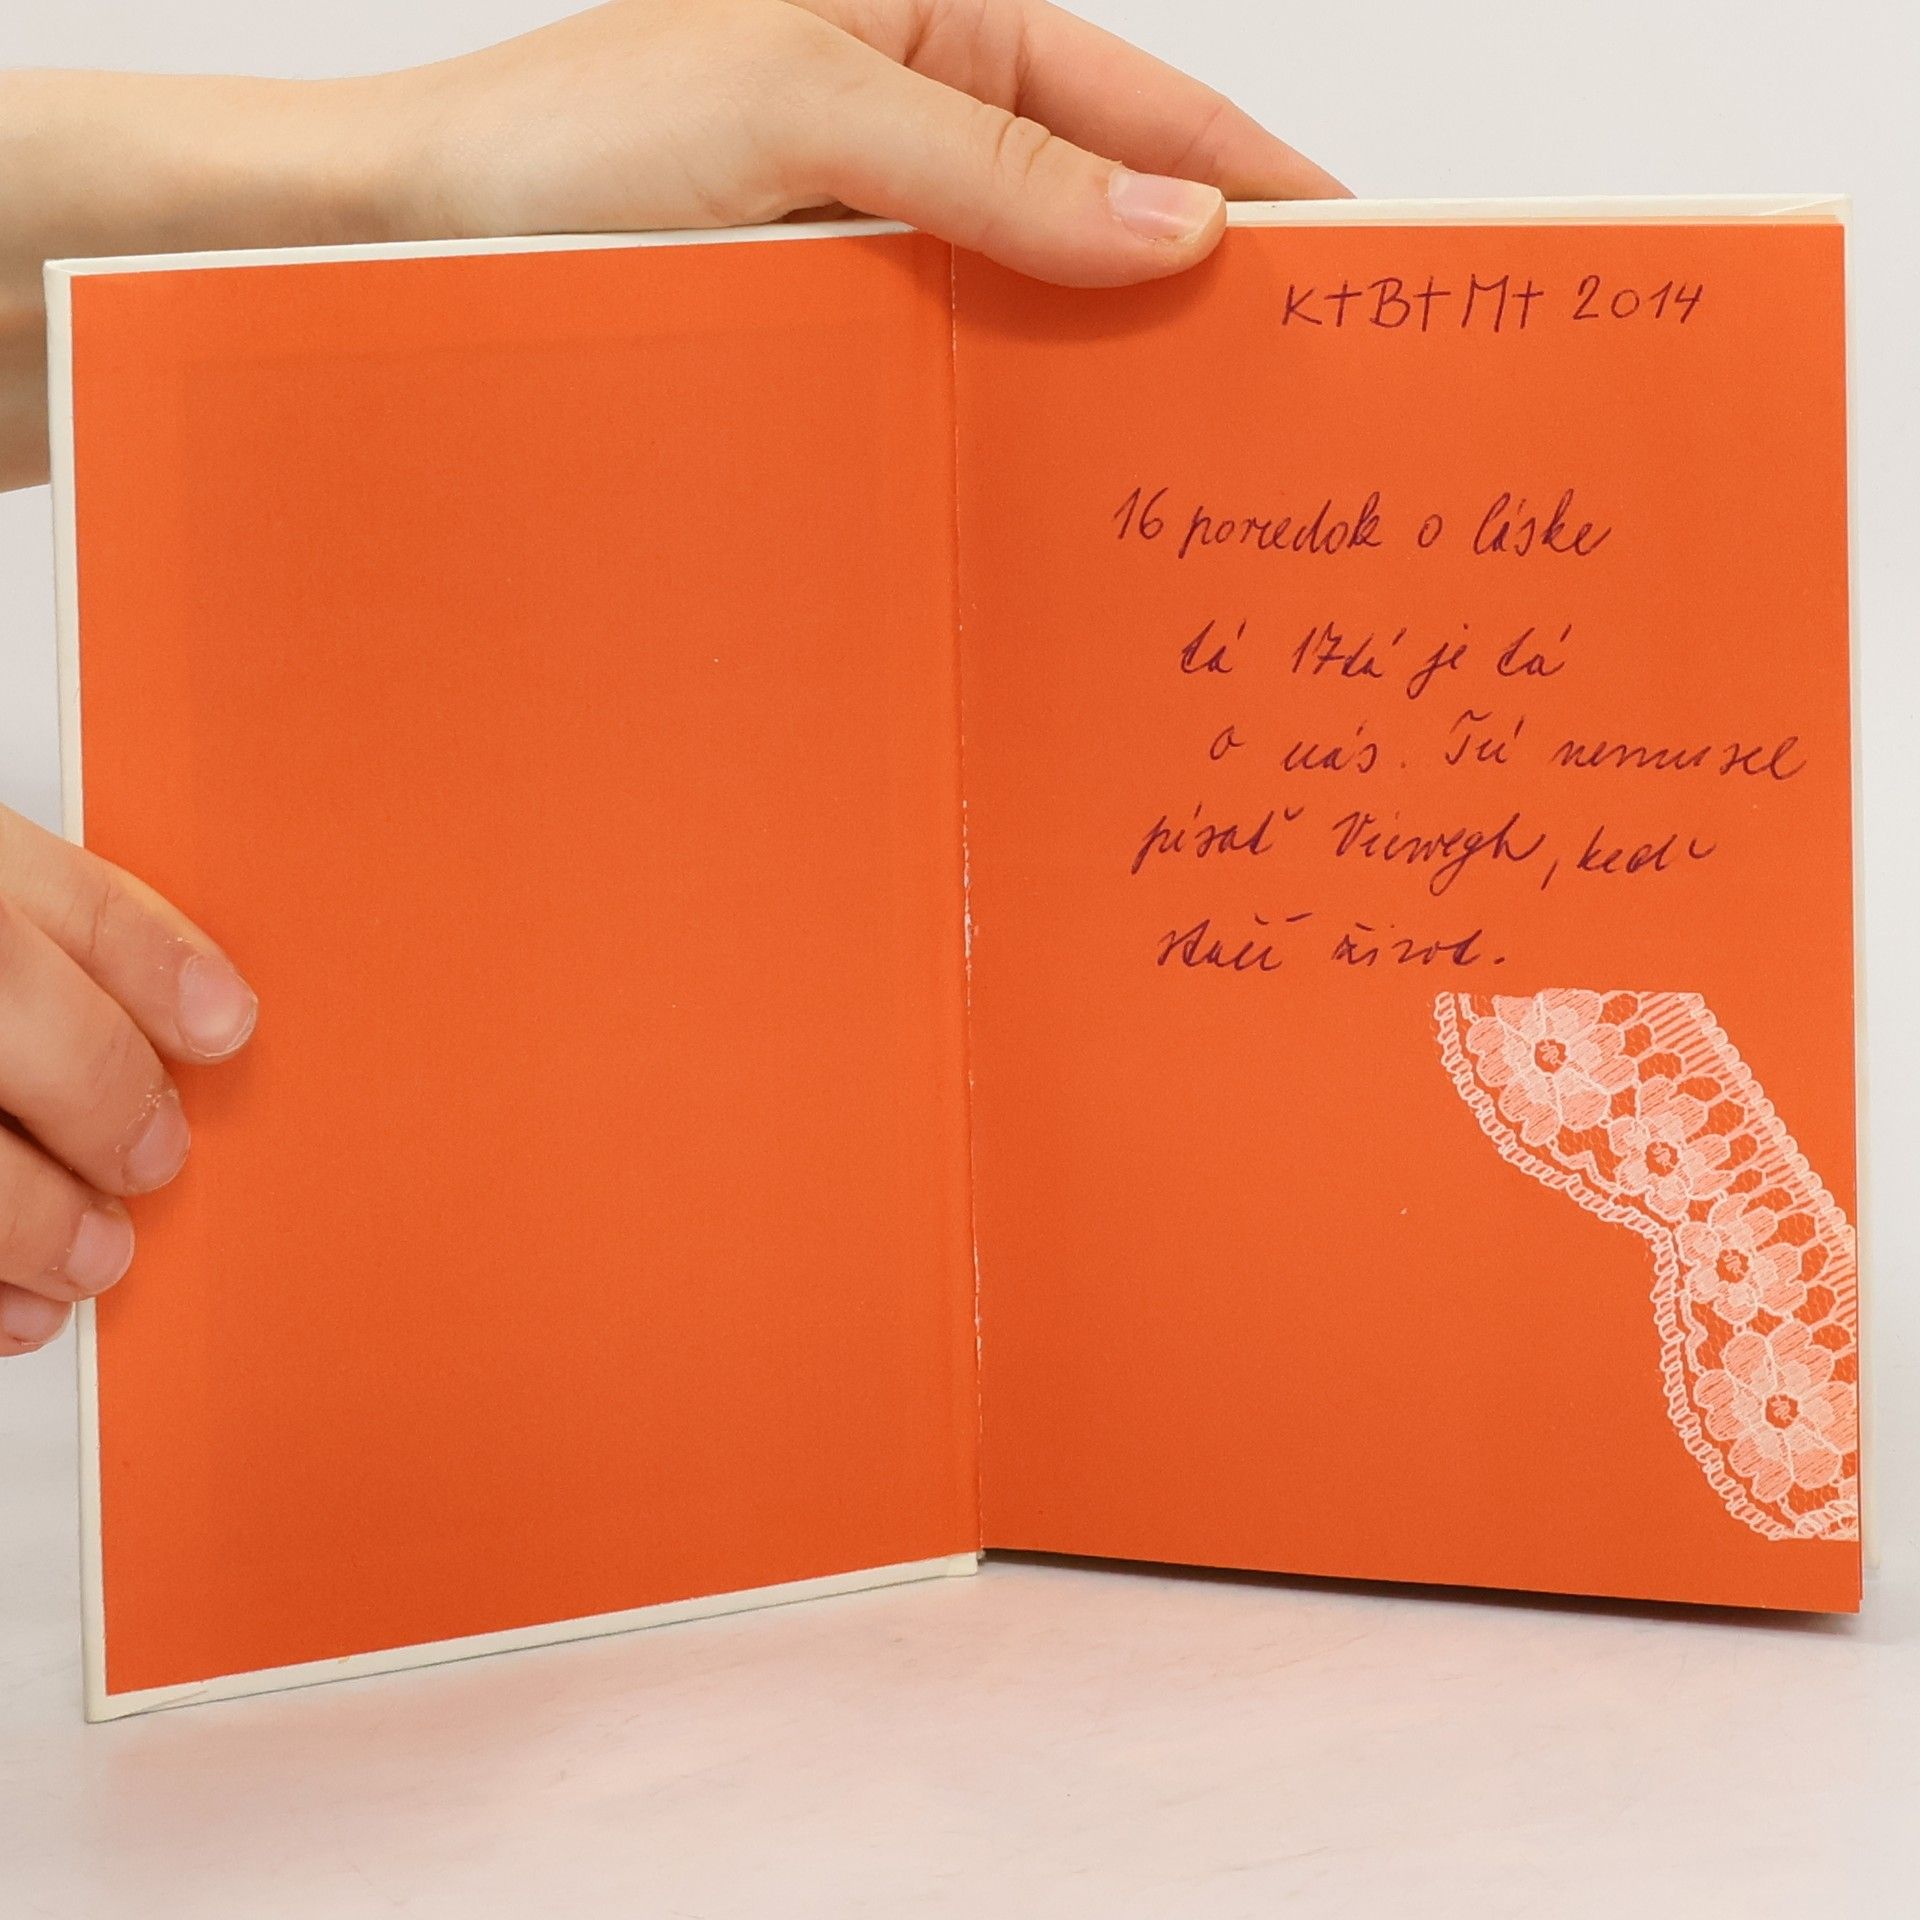 K+B+M+ 2014
16 poviedok o láske
tá 17tá je tá
o nás. Tú nemusel
písať Viewegh, keď
stačí život.